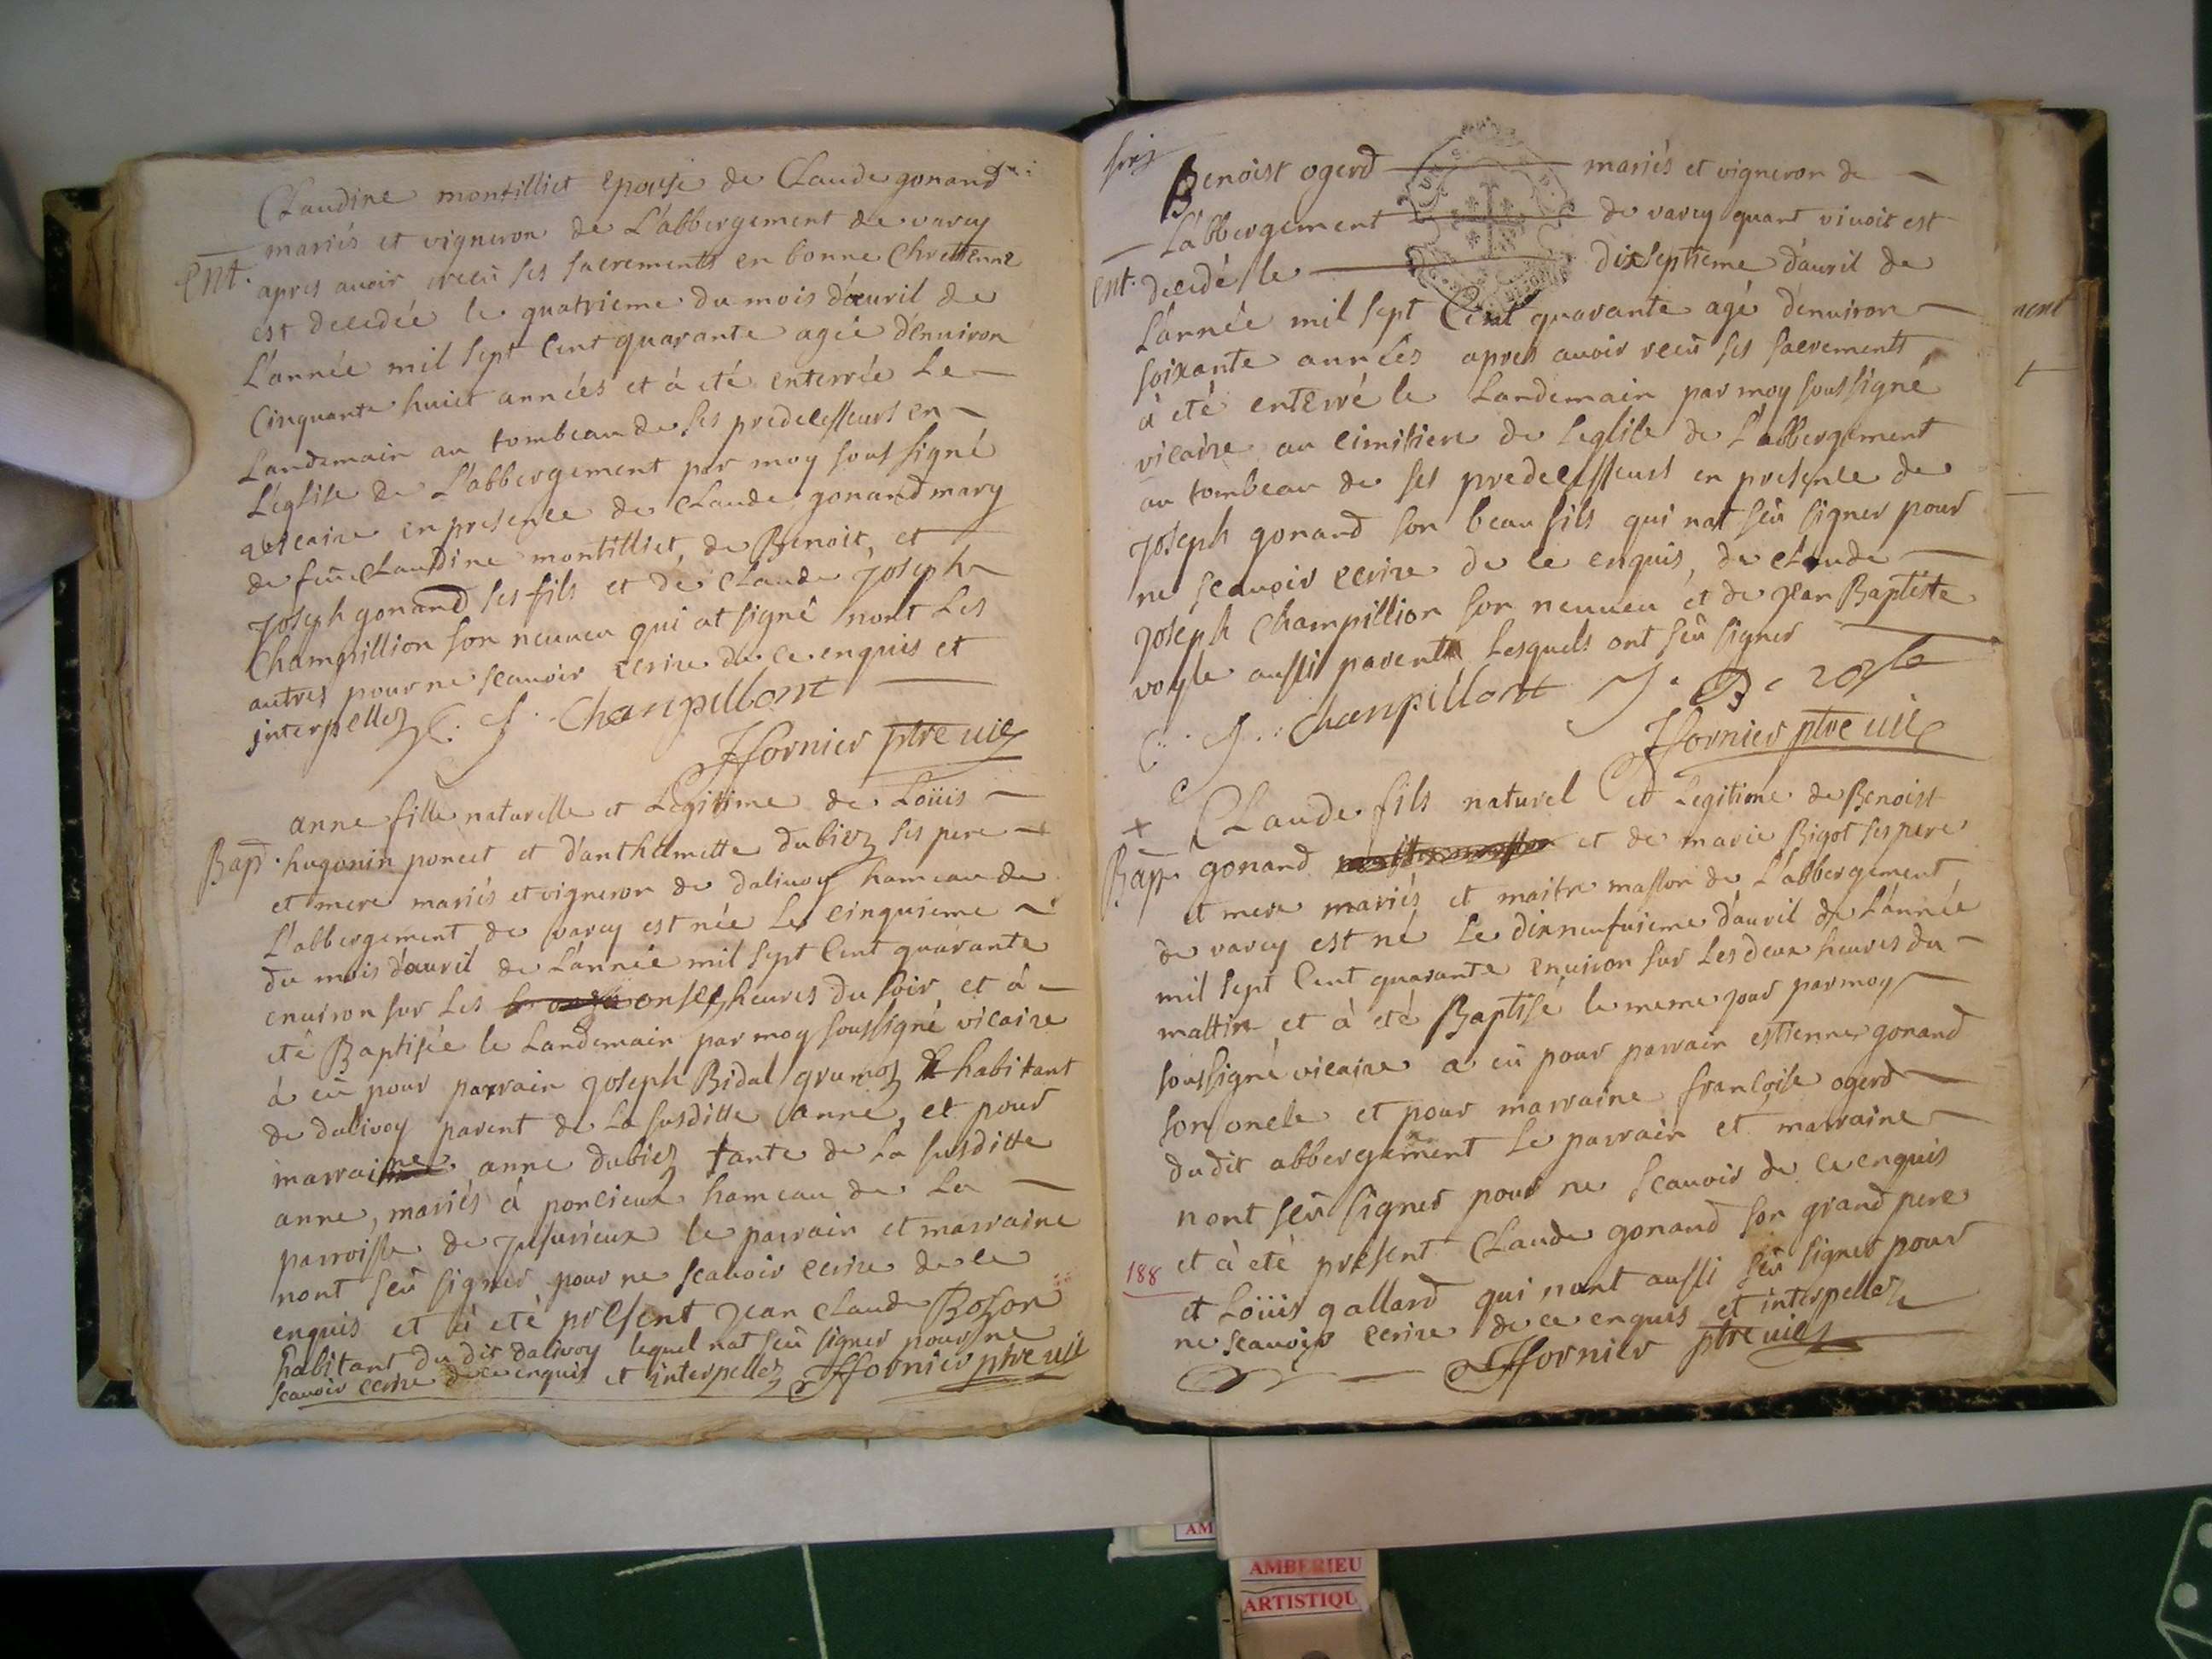 Claudine montilliet epouse de Claude gonand
mariés et vigneron de L'abbergement de varey
Ent. apres auoir receü ses sacrements en bonne Chrettenne
est decedée le quatrieme du mois d'auril de
L'année mil sept Cent quarante agée d'enuiron
Cinquante huict années et à eté enterrée Le
Landemain au tombeau de ses predecesseurs en
L'eglise de L'abbergement par moy sous signé
vicaire en presence de Claude gonand mary
de feüe Claudine montilliet, de Benoit, et
Joseph gonand ses fils et de Claude Joseph
Champillion son neuueu qui at signé nont Les
autres pour ne scauoir ecrire de ce enquis et
interpellez C. J. Champillont
Ffornier ptre uic
anne fille naturelle et Legitime de Loüis
Bap. hugonin poncet et d'anthelmette dubiez ses pere
et mere mariés et vigneron de dalivoy hameau de
L'abbergement de varey est née Le cinquieme
du mois d'auril de L'année mil sept Cent quarante
enuiron sur Les onses heures du soir et à
eté Baptisée le Landemain par moy soussigné vicaire
à eü pour parrain Joseph Bidal grumoz habitant
de dalivoy parent de La susditte anne, et pour
marraine anne dubiez tante de La susditte
anne, mariés à poncieux hameau de La
parroisse de Jusurieux le parrain et marraine
nont seü signer pour ne scauoir ecrire de ce
enquis et à eté present Jean Claude Bozon
habitant du dit dalivoy lequel nat seü signer pour ne
scauoir ecrire de ce enquis et interpellez Ffornier ptre uic
Benoist ogerd mariés et vigneron de
L'abbergement de varey quant viuoit est
Ent. decedé le dixseptieme d'auril de
L'année mil sept Cent quarante agé d'enuiron
soixante années apres auoir receü ses sacrements
à eté enterré le Landemain par moy soussigné
vicaire au cimitiere de L'eglise de L'abbergement
au tombeau de ses predecesseurs en presence de
Joseph gonand son beau fils qui nat seü signer pour
ne scauoir ecrire de ce enquis, de Claude
Joseph Champillion son neuueu et de Jean Baptiste
vogle aussi parents Lesquels ont seü signer
C. J. Champillont J. B.
Ffornier ptre uic
Claude fils naturel et Legitime de Benoist
Bap. gonand et de marie Bigot ses pere
et mere mariés et maitre masson de L'abbergement
de varey est né Le dixneufuieme d'auril de L'année
mil sept Cent quarante enuiron sur Les deux heures du
mattin et à eté Baptisé le meme jour par moy
soussigné vicaire a eü pour parrain estienne gonand
son oncle et pour marraine françoise ogerd
du dit abbergement Le parrain et marraine
nont seü signer pour ne scauoir de ce enquis
et à eté present Claude gonand son grand pere
188
et Loüis galland qui nont aussi seü signer pour
ne scauoir ecrire de ce enquis et interpellez
Ffornier ptre uic
nent
t
AM
AMBERIEU
ARTISTIQU